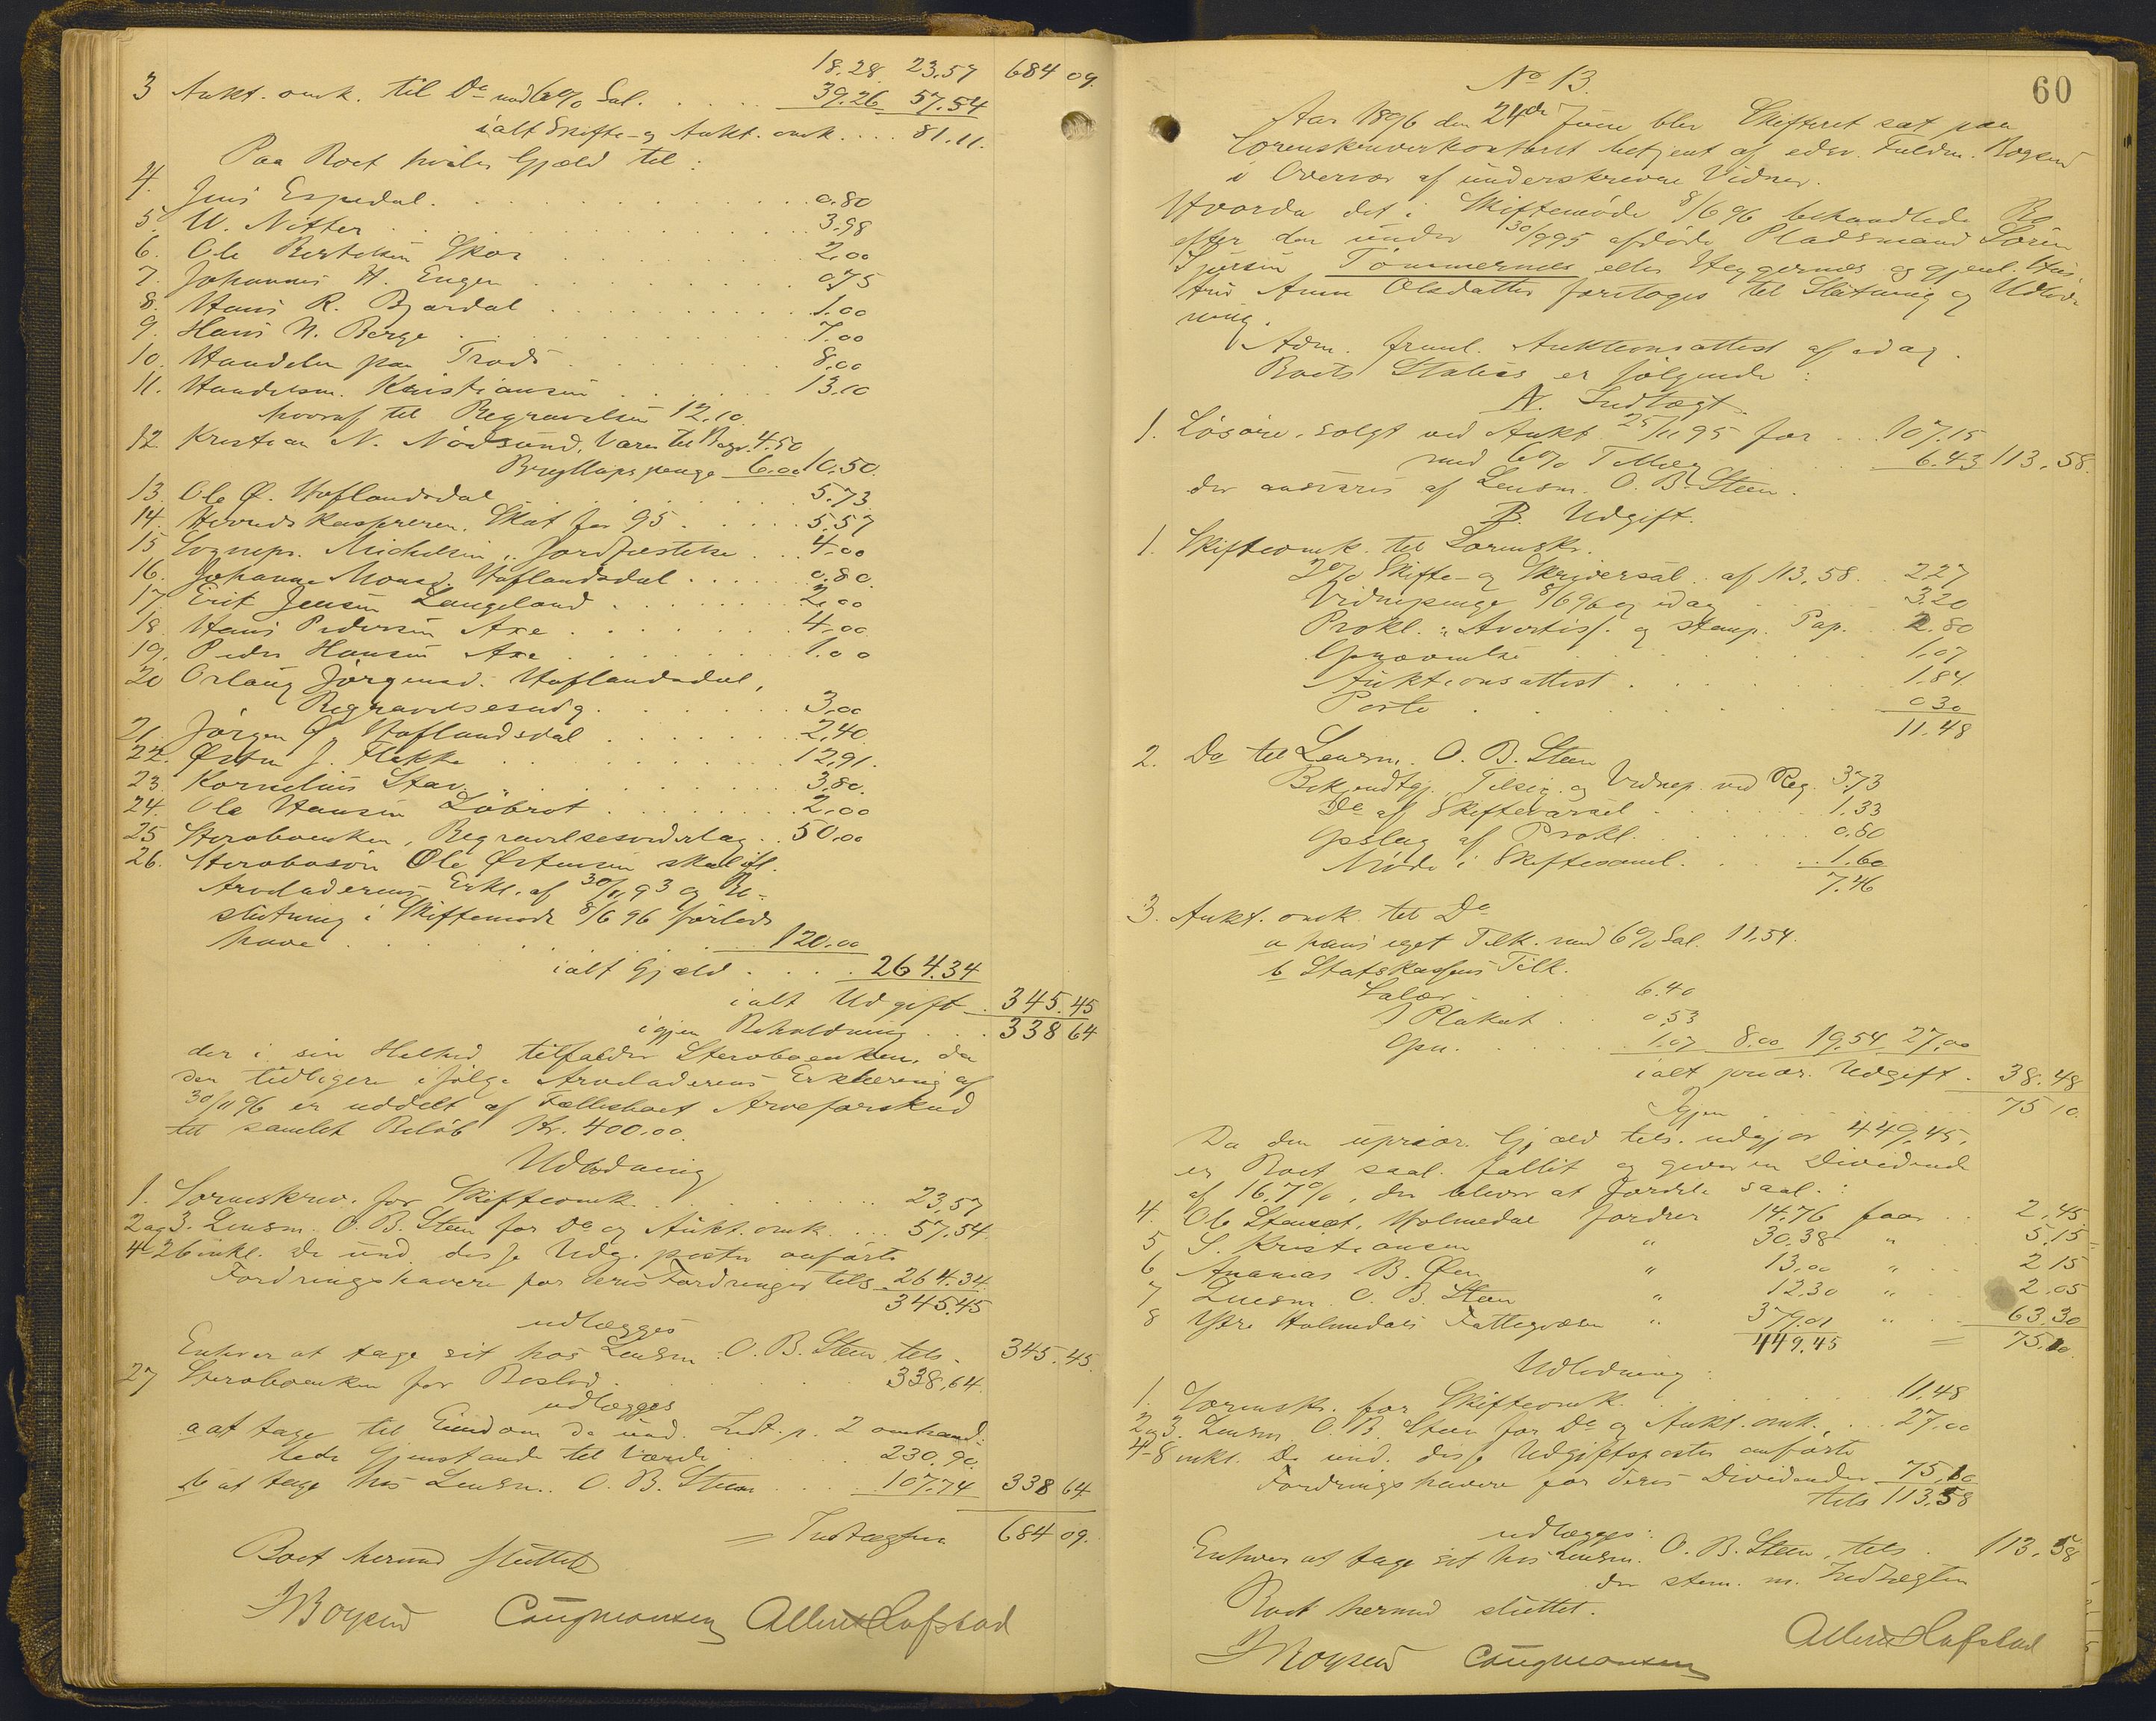 18.28. 23.57 684 09.
3 Aukt. omk. til Do med 6% Sal. . . . . 39.26 57.54
ialt Skifte- og Aukt. omk. . . . 81.11.
Paa Boet hviler Gjæld til:
4. Jens Espedal. . . . 0.80
5. W. Nitter . . . 3.98
6. Ole Bertelsen Skor . . . 2.00
7. Johannes H. Engen . . . 0.75
8. Hans R. Bjordal . . . 1.00
9. Hans N. Berge . . . 7.00
10. Handelen paa . . . 8.00
11. Handelsm. Kristiansen . . . 13.10
hvoraf til Begravelsen 12.10
12. Kristian N. Nødsund, Varer til Begr. 4.50
6.00 10.50.
13. Ole Ø. Hoflandsdal . . . 5.73
14. Herredskassereren. Skat for 95 . . . 5.57
15. Sognepr. Michelsen, Jordfæstelse . . 4.00
16. Johanne Monsd. Hoflandsdal . . . 0.80.
17. Erik Jensen Langeland . . . 2.00
18. Hans Pedersen Axe . . . 4.00
19. Peder Hansen Axe . . . 1.00
20 Jørgensd. Hoflandsdal,
Begravelsesudg. . . . 3.00
21. Jørgen Ø. Hoflandsdal . . . 2.40
22. Østen J. Flekke . . . 12.91.
23. Kornelius Stav . . . 3.80.
24. Ole Hansen . . . 2.00
25 Sterboenken, Begravelsesvederlag . . 50.00
26. Ole Østensen skal ifl.
Arveladerens Erkl. af 30/11 93 og Be-
slutning i Skiftemøde 8/6 96 forlods
have . . . 120.00
ialt Gjæld . . . . 264.34
ialt Udgift . 345.45
igjen Beholdning . . . 338 64
der i sin Helhed tilfalder Sterboenken, da
der tidligere ifølge Arveladerens Erklæring af
30/11 96 er uddelt af Fællesboet Arveforskud
til samlet Beløb Kr. 400.00.
Udlodning
1. Sorenskriv. for Skifteomk. . . . 23.57
2 og 3. Lensm. O. B. Steen for Do og Aukt. omk. . . . 57.54
4-26 inkl. De und. disse Udg. poster anførte
Fordringshavere for deres Fordringer tils. 264.34.
345.45
udlægges
Enhver at tage sit hos Lensm. O. B. Steen tils. 345.45.
27 Sterboenken for Boslod . . . 338,64.
udlægges
a at tage til Eiendom de und. Indt. p. 2 omhand-
lede Gjenstande til Værdi . . . 230.90.
b at tage hos Lensm. O. B. Steen . . . 107.74 338 64
= Indtægten 684 09.
Boet hermed sluttet
Albert Hofstad
60
No 13.
Aar 1896 den 24de Juni blev Skifteret sat paa
Sorenskriverkontoret betjent af edsv. Fuldm.
i Overvær af underskrevne Vidner.
Hvorda det i Skiftemøde 8/6 96 behandlede Bo
efter den under 30/9 95 afdøde Pladsmand Søren
Tømmernes eller Heggernes og gjenl. Hus-
tru Anna Olsdatter foretoges til Slutning og Udlod-
ning.
Adm. freml. Auktionsattest af idag.
Boets Status er følgende:
A. Indtægt.
1. Løsøre, solgt ved Aukt. 25/11 95 for . . 107.15
med 6% Tillæg . . . 6.43 113.58.
der ansvares af Lensm. O. B. Steen.
B. Udgift.
1. Skifteomk. til Sorenskr.
2% Skifte- og Skriversal. af 113,58. . 2 27
Vidnepenge 8/6 96 og idag . . . 3 20
Prokl.: Avertiss. og stemp. Pap. . 2.80
. . . 1.07
Auktionsattest . . . 1.84.
Porto . . . 0 30
11.48
2. Do til Lensm. O. B. Steen
Bekjendtgj. Tilsig. og Vidnep. ved Reg. 3.73
Do af Skiftevarsel . . . 1.33
Opslag af Prokl. . . . 0.80
Møde i Skiftesaml. . . . 1.60
7.46
3. Aukt. omk. til Do
a hans eget Tilk. med 6% Sal. 11.54.
b Statskassens Tilk.
Salær . . . 6.40
1 Plakat . . 0.53
. . . 1.07 8.00 19.54 27.00
ialt prior. Udgift . 38.48
Igjen . . . 75 10.
Da den uprior. Gjæld tils. udgjør 449,45,
er Boet saal. fallit og giver en Dividende
af 16,7%, der bliver at fordele saal.:
4. Ole Holmedal fordrer 14.76 faar . . 2.45.
5 S. Kristiansen " 30.38 " . . 5.15
6 Ananias B. Øen " 13.00 " . . 2 15
7 Lensm. O. B. Steen " 12.30 " . . 2.05
8 Ytre Holmedals Fattigvæsen " 379.01 " . . 63.30
449.45 = 75.10.
Udlodning:
1. Sorenskr. for Skifteomk. . . . 11.48
2 og 3. Lensm. O. B. Steen for Do og Aukt. omk. . . . 27.00
4-8 inkl. De und. disse Udgiftsposter anførte
Fordringshavere for deres Dividender 75,10
tils 113.58
udlægges:
Enhver at tage sit hos Lensm. O. B. Steen, tils . 113.58
der stem. m. Indtægten
Boet hermed sluttet.
Albert Hofstad